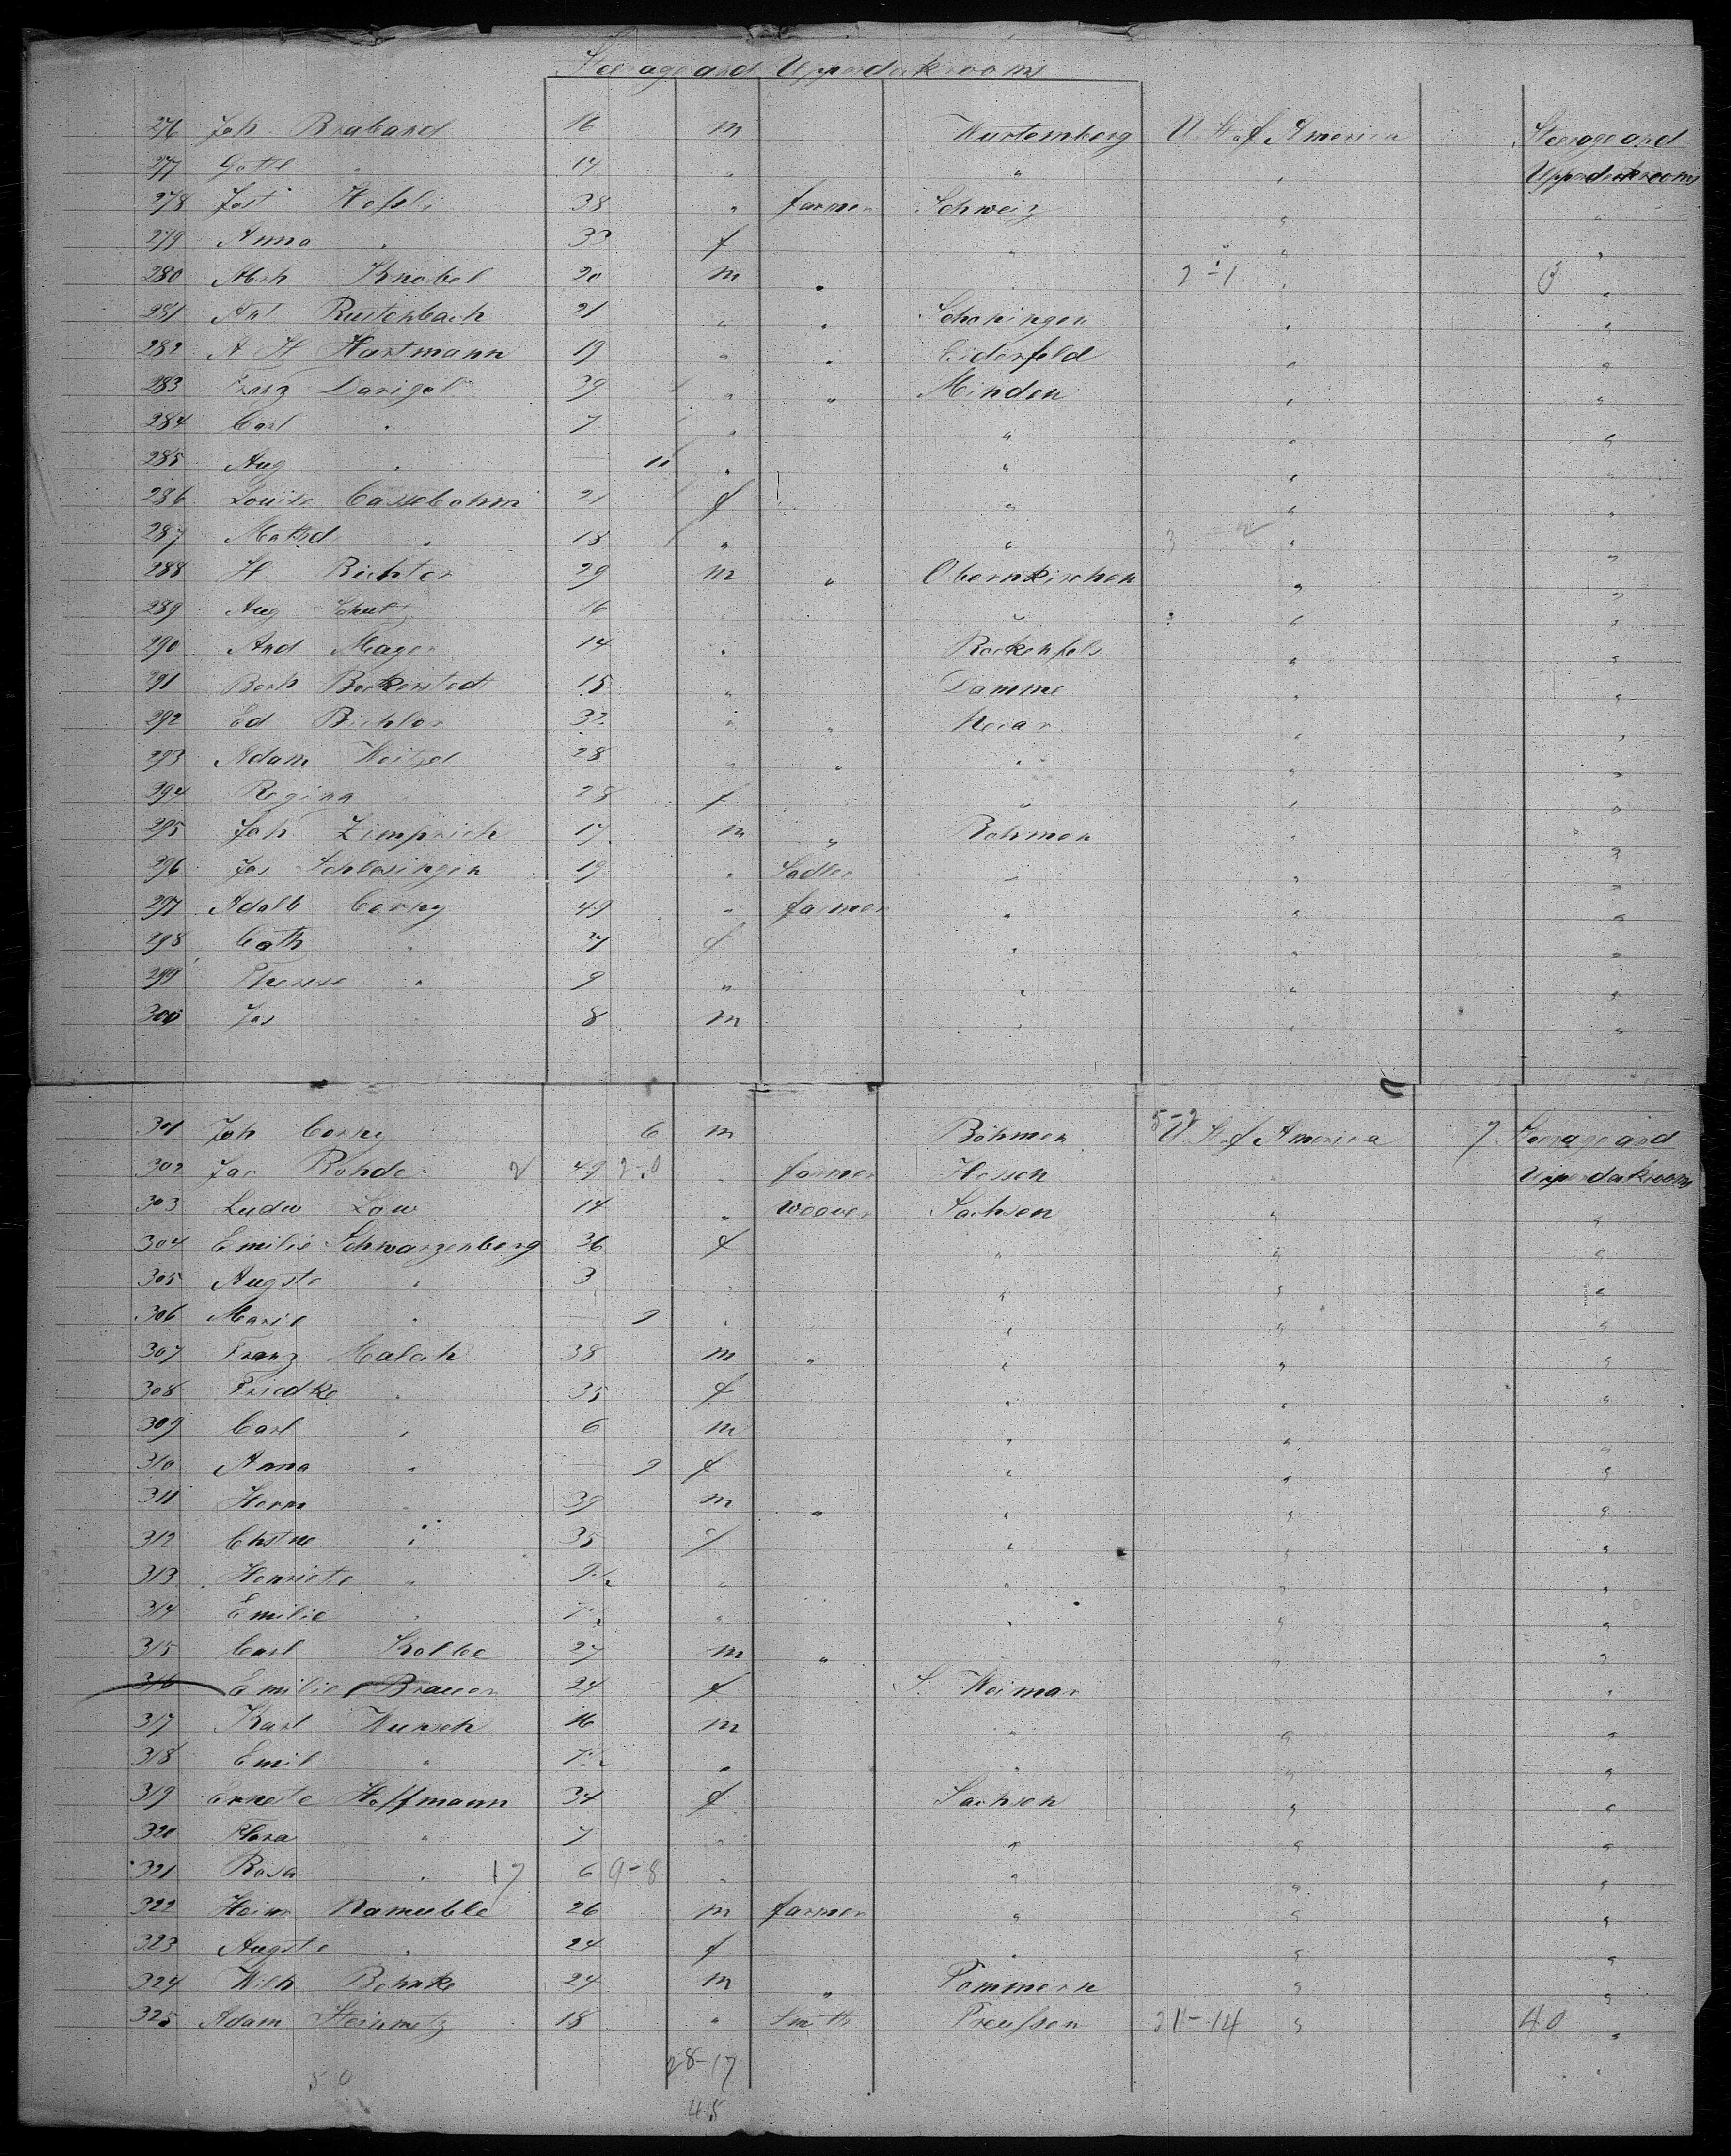 Steerage and Upperdeckrooms
276 Joh. Braband 16 m Wurtemberg U. St. of America Steerage and
277 Gottl " 14 " " " Upperdeckrooms
278 Jost Hefsli 38 " farmer Schweiz " "
279 Anna " 33 f " " "
280 Abrh Knobel 20 m " " 2-1 " "
281 Ant Rustenbach 21 " " Schoningen " "
282 A H Hartmann 19 " " Eiderfeld " "
283 Franz Darigel 39 " " Minden " "
284 Carl " 7 " " " "
285 Aug " 11 " " " "
286 Louise Cassebohm 21 f " " "
287 Mathd " 18 " " 3 - 2 " "
288 H Richter 29 m " Obernkirchen " "
289 Aug Schutz 16 " " " "
290 And Mager 14 " Rockenfels " "
291 Bernh Bockerstedt 15 " Damme " "
292 Ed Bichler 32 " " " "
293 Adam Weitzel 28 " " " " "
294 Regina 28 f " " "
295 Joh Zimprich 17 m " Bohmen " "
296 Jos Schlesinger 19 " Sadler " " "
297 Adalb Cerny 49 " farmer " " "
298 Cath " f " " "
299 Therese " 9 " " " "
300 Jos 8 m " " "
301 Joh Cerny 6 m Böhmen 5-2 U. St. of America 7 Steerage and
302 Jac Rohde 2 49 2-0 " farmer Hessen " Upperdeckrooms
303 Ludw Low 14 " weaver Sachsen " "
304 Emilie Schwarzenberg 36 f " " "
305 Augste " 3 " " " "
306 Marie " 9 " " " "
307 Franz Malch 38 m " " " "
308 Friedke " 35 f " " "
309 Carl " 6 m " " "
310 Anna " 9 f " " "
311 Herm " 39 m " " " "
312 Chstne " 35 f " " "
313 Henriete " 9½ " " " "
314 Emilie " 7½ " " " "
315 Carl Kolbe 27 m " " " "
316 Emilie Brauer 24 f S. Weimar " "
317 Karl Wunsch 16 m " " "
318 Emil " 7½ " " " "
319 Ernste Hoffmann 34 f Sachsen " "
320 Flora " 7 " " " "
321 Rosa " 17 6 9-8 " " " "
322 Heinr Rameuble 26 m farmer " " "
323 Augste " 24 f " " "
324 Wilh Behnke 24 m " Pommern " "
325 Adam Steinmetz 18 " Smith Preufsen 21-14 " 40 "
28-17
50
45